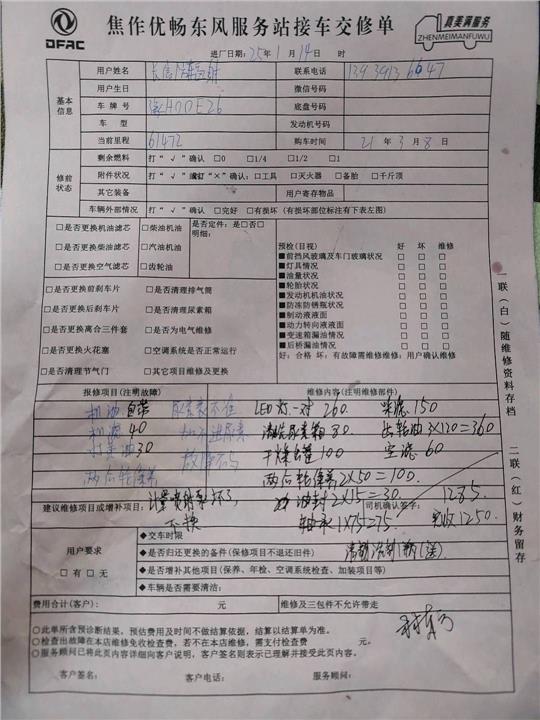 DFAC
焦作优畅东风服务站接车交修单
真美满服务
ZHENMEIMANFUWU
进厂日期：25年1月14日 时
用户姓名 联系电话 139 3913 6647
基本信息
用户生日 微信号码
车牌号 HODE26 底盘号码
车型 发动机号码
当前里程 61472 购车时间 21年3月8日
修前状态
剩余燃料 打“√”确认 □0 □1/4 □1/2 □1
附件状况 打“√”或打“×”确认：□工具 □灭火器 □备胎 □千斤顶
其它装备 用户寄存物品
车辆外部情况 打“√”确认 □完好 □有损坏（有损坏部位标注有下表左图）
□是否更换机油滤芯 □柴油机油 是否定件：是□否□
□是否更换柴油滤芯 □汽油机油 明细：
□是否更换空气滤芯 □齿轮油
□是否更换前刹车片 □是否清理排气筒
□是否更换后刹车片 □是否清理尿素箱
□是否更换离合三件套 □是否为电气维修
□是否更换火花塞 □空调系统是否正常运行
□是否清理节气门 □其它项目维修及更换
预检(目视) 好 坏 维修
■前挡风玻璃及车门玻璃状况
■灯具情况
■油量状况
■轮胎状况
■发动机机油状况
■防冻防锈瓶状况
■制动液液面
■动力转向液液面
■变速箱漏油情况
■后桥漏油情况
好：合格 坏：有故障需维修维修：用户确认维修
报修项目(注明故障) 维修内容(注明维修部件)
机油自带 尿素表不准 LED灯一对 260 柴滤 150
机滤 40 加不进尿素 清洗尿素箱 80 齿轮油 3×120=360
打黄油 30 故障码 干燥罐 100 空滤 60
两后轮保养 两后轮保养 2×50=100
计量喷射泵坏了 油封 2×15=30 1285
建议维修项目或增补项目： 司机确认签字：
不换 轴承 1×75=75 实收1250
用户要求
□有 □无
◆交车时限
◆是否归还更换的备件(保修项目不退还旧件)
◆是否增补其他项目(保养、年检、空调系统检查、加装项目等)
◆车辆是否需要清洁：
费用合计(客户)： 元 维修及三包件不允许带走
○此单所含预诊断结果，预估费用及时间不做结算依据，结算以结算单为准。
○检查出故障在本店维修免收检查费，若不在本店维修，需支付检查费 元。
○服务顾问已将此页内容详细向客户说明，客户签名则表示已理解并接受此页内容。
客户签名： 客户电话： 服务顾问：
一联(白)随维修资料存档
二联(红)财务留存